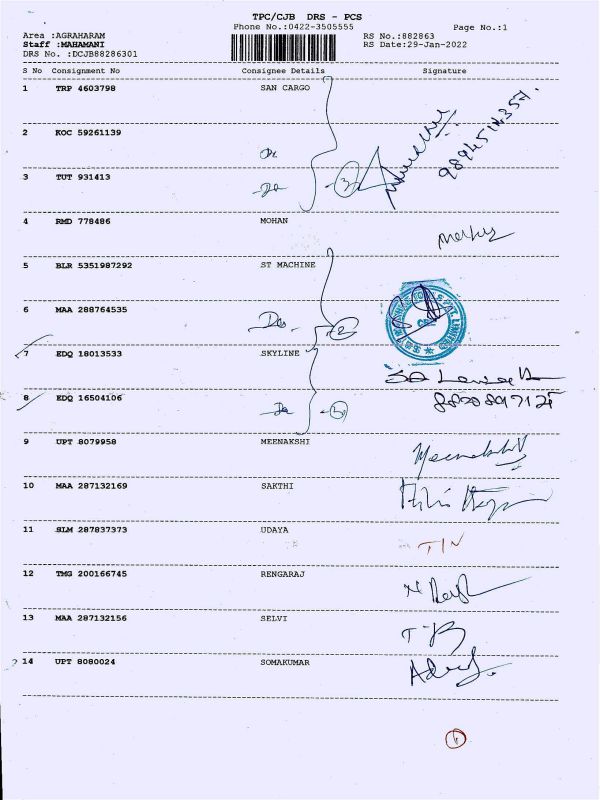 TPC/CJB DRS - PCS
Phone No.:0422-3505555
Page No.:1
Area :AGRAHARAM
RS No.:882863
Staff :MAHAMANI
RS Date:29-Jan-2022
DRS No. :DCJB88286301
S No Consignment No Consignee Details Signature
1 TRP 4603798 SAN CARGO
2 KOC 59261139
Do
3 TUT 931413 Do 3
4 RMD 778486 MOHAN
5 BLR 5351987292 ST MACHINE
6 MAA 288764535 Do 2
7 EDQ 18013533 SKYLINE
8 EDQ 16504106 Do 2
9 UPT 8079958 MEENAKSHI Meenakshi
10 MAA 287132169 SAKTHI
11 SLM 287837373 UDAYA T/N
12 TMG 200166745 RENGARAJ
13 MAA 287132156 SELVI
14 UPT 8080024 SOMAKUMAR
1